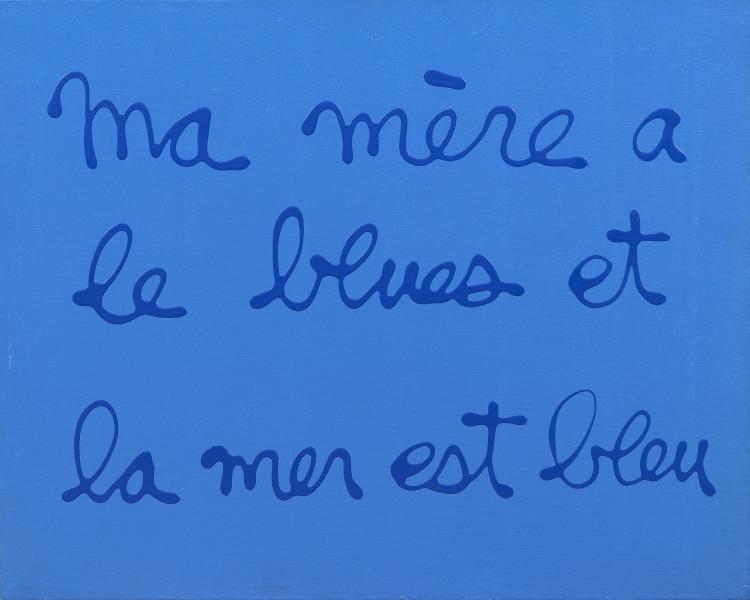 ma mère a
le blues et
la mer est bleu